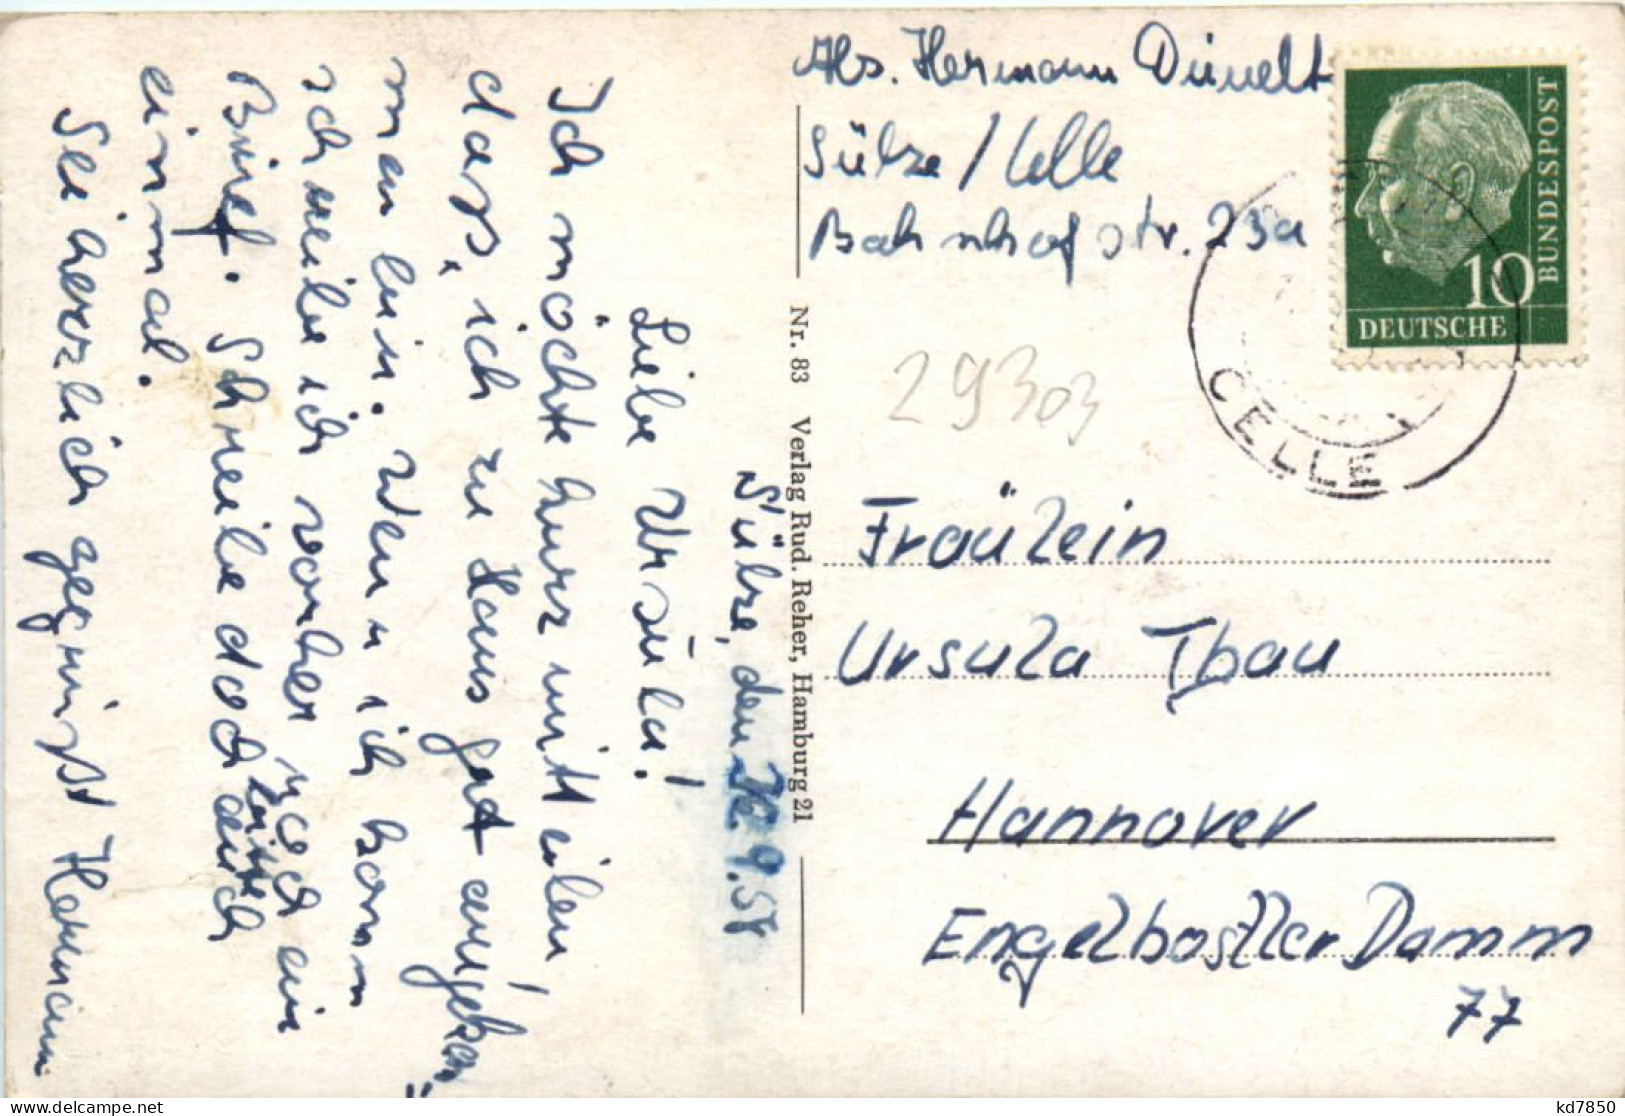 Abs. Hermann Dünelt
Sülze / Celle
Bahnhofstr. 23a
DEUTSCHE
BUNDESPOST
10
CELLE
29303
Nr. 83 Verlag Rud. Reher, Hamburg 21
Fräulein
Ursula Thau
Hannover
Engelbostler Damm
77
Sülze, den 9.58
Liebe Ursula!
Ich möchte kurz mitteilen,
dass, ich zu Haus gut angekom„
men bin. Wenn ich komm
schreibe ich vorher noch ein
Brief. Schreibe doch auch
einmal.
Sei herzlich gegrüßt Hermann
kd7850